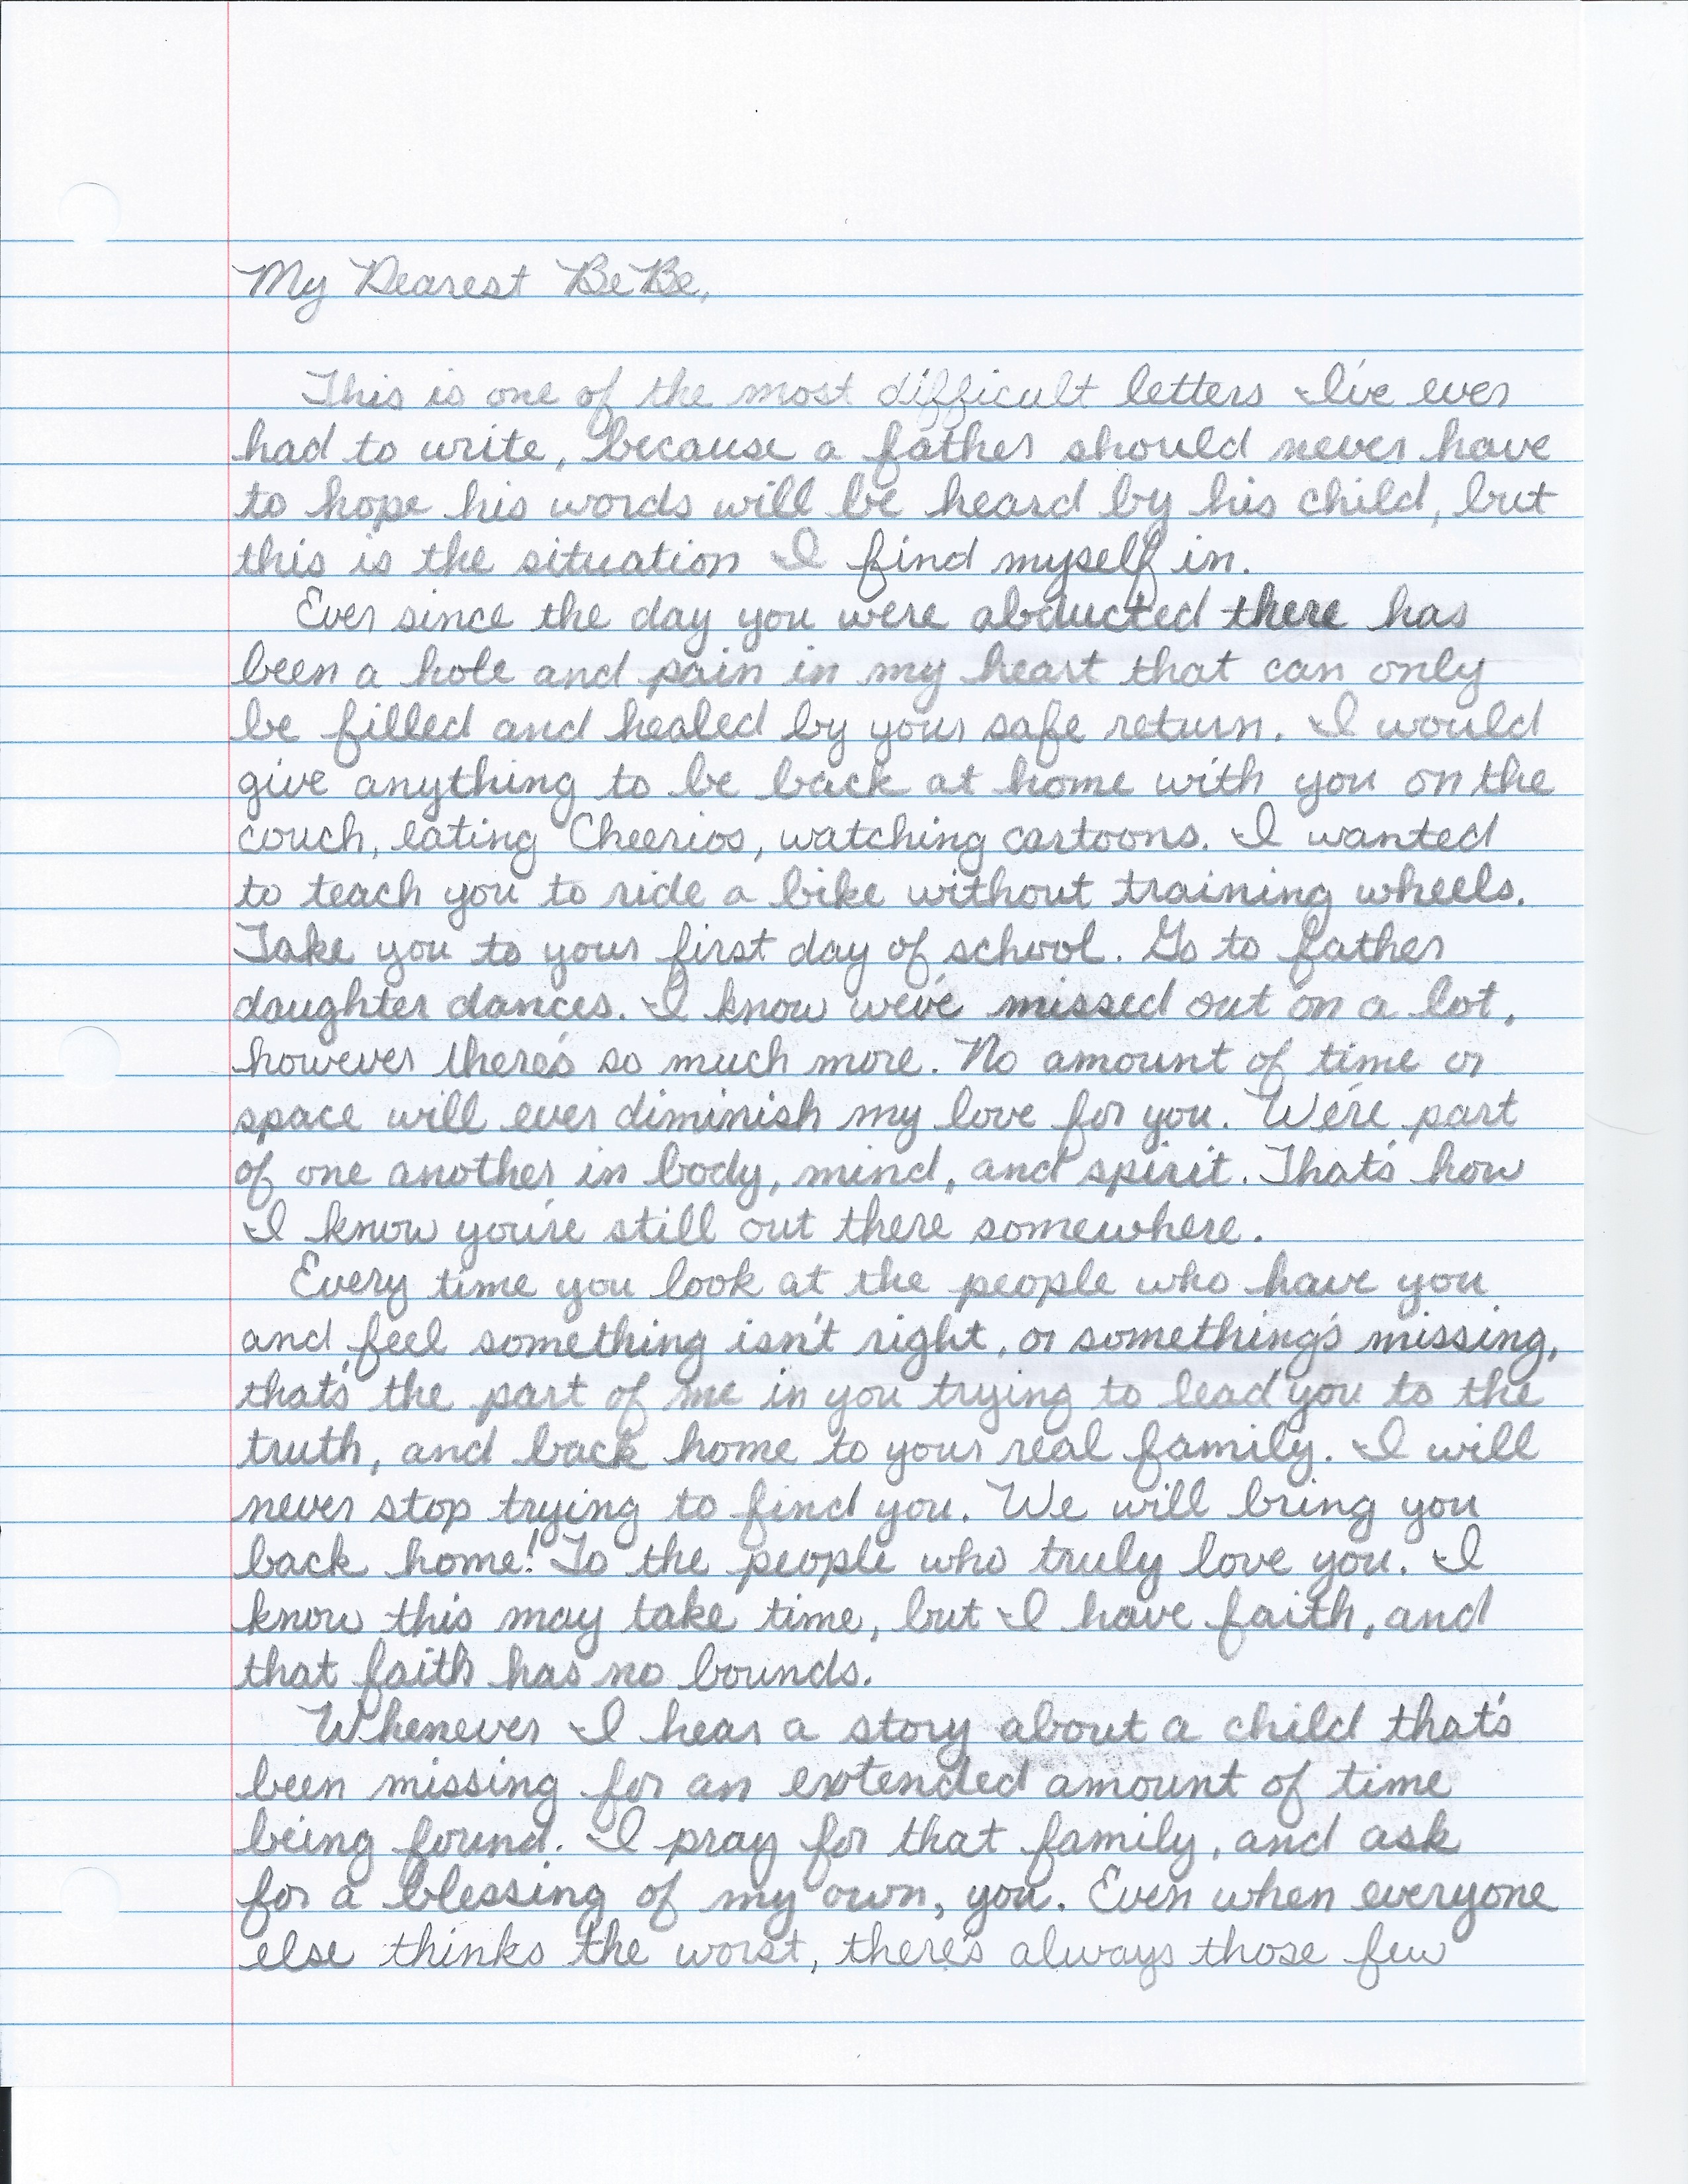 My Dearest BeBe,
This is one of the most difficult letters I've ever
had to write, because a father should never have
to hope his words will be heard by his child, but
this is the situation I find myself in.
Ever since the day you were abducted there has
been a hole and pain in my heart that can only
be filled and healed by your safe return. I would
give anything to be back at home with you on the
couch, eating Cheerios, watching cartoons. I wanted
to teach you to ride a bike without training wheels.
Take you to your first day of school. Go to father
daughter dances. I know we've missed out on a lot,
however there's so much more. No amount of time or
space will ever diminish my love for you. We're part
of one another in body, mind, and spirit. That's how
I know you're still out there somewhere.
Every time you look at the people who have you
and feel something isn't right, or something's missing,
that's the part of me in you trying to lead you to the
truth, and back home to your real family. I will
never stop trying to find you. We will bring you
back home! To the people who truly love you. I
know this may take time, but I have faith, and
that faith has no bounds.
Whenever I hear a story about a child that's
been missing for an extended amount of time
being found. I pray for that family, and ask
for a blessing of my own, you. Even when everyone
else thinks the worst, there's always those few